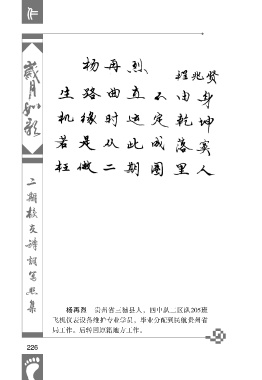 作
岁月如歌
二期校友诗词笔墨集
杨再烈
程兆贤
生路曲直不由身
机缘时运定乾坤
若是从此成落寞
枉做二期圈里人
杨再烈 贵州省三穗县人。四中队二区队205班
飞机仪表设备维护专业学员。毕业分配到民航贵州省
局工作。后转回原籍地方工作。
226